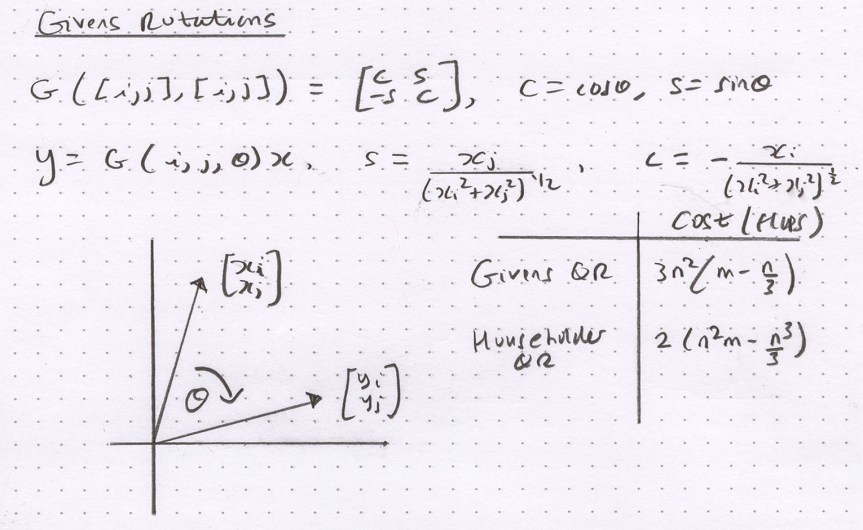 Givens Rotations
G([i,j],[i,j]) = [c s -s c], c = cosθ, s = sinθ
y = G(i,j,θ)x, s = xj/(xi²+xj²)^1/2, c = -xi/(xi²+xj²)^1/2
Cost (flops)
Givens QR 3n²(m - n/3)
Householder QR 2(n²m - n³/3)
[xi xj]
θ
[yi yj]